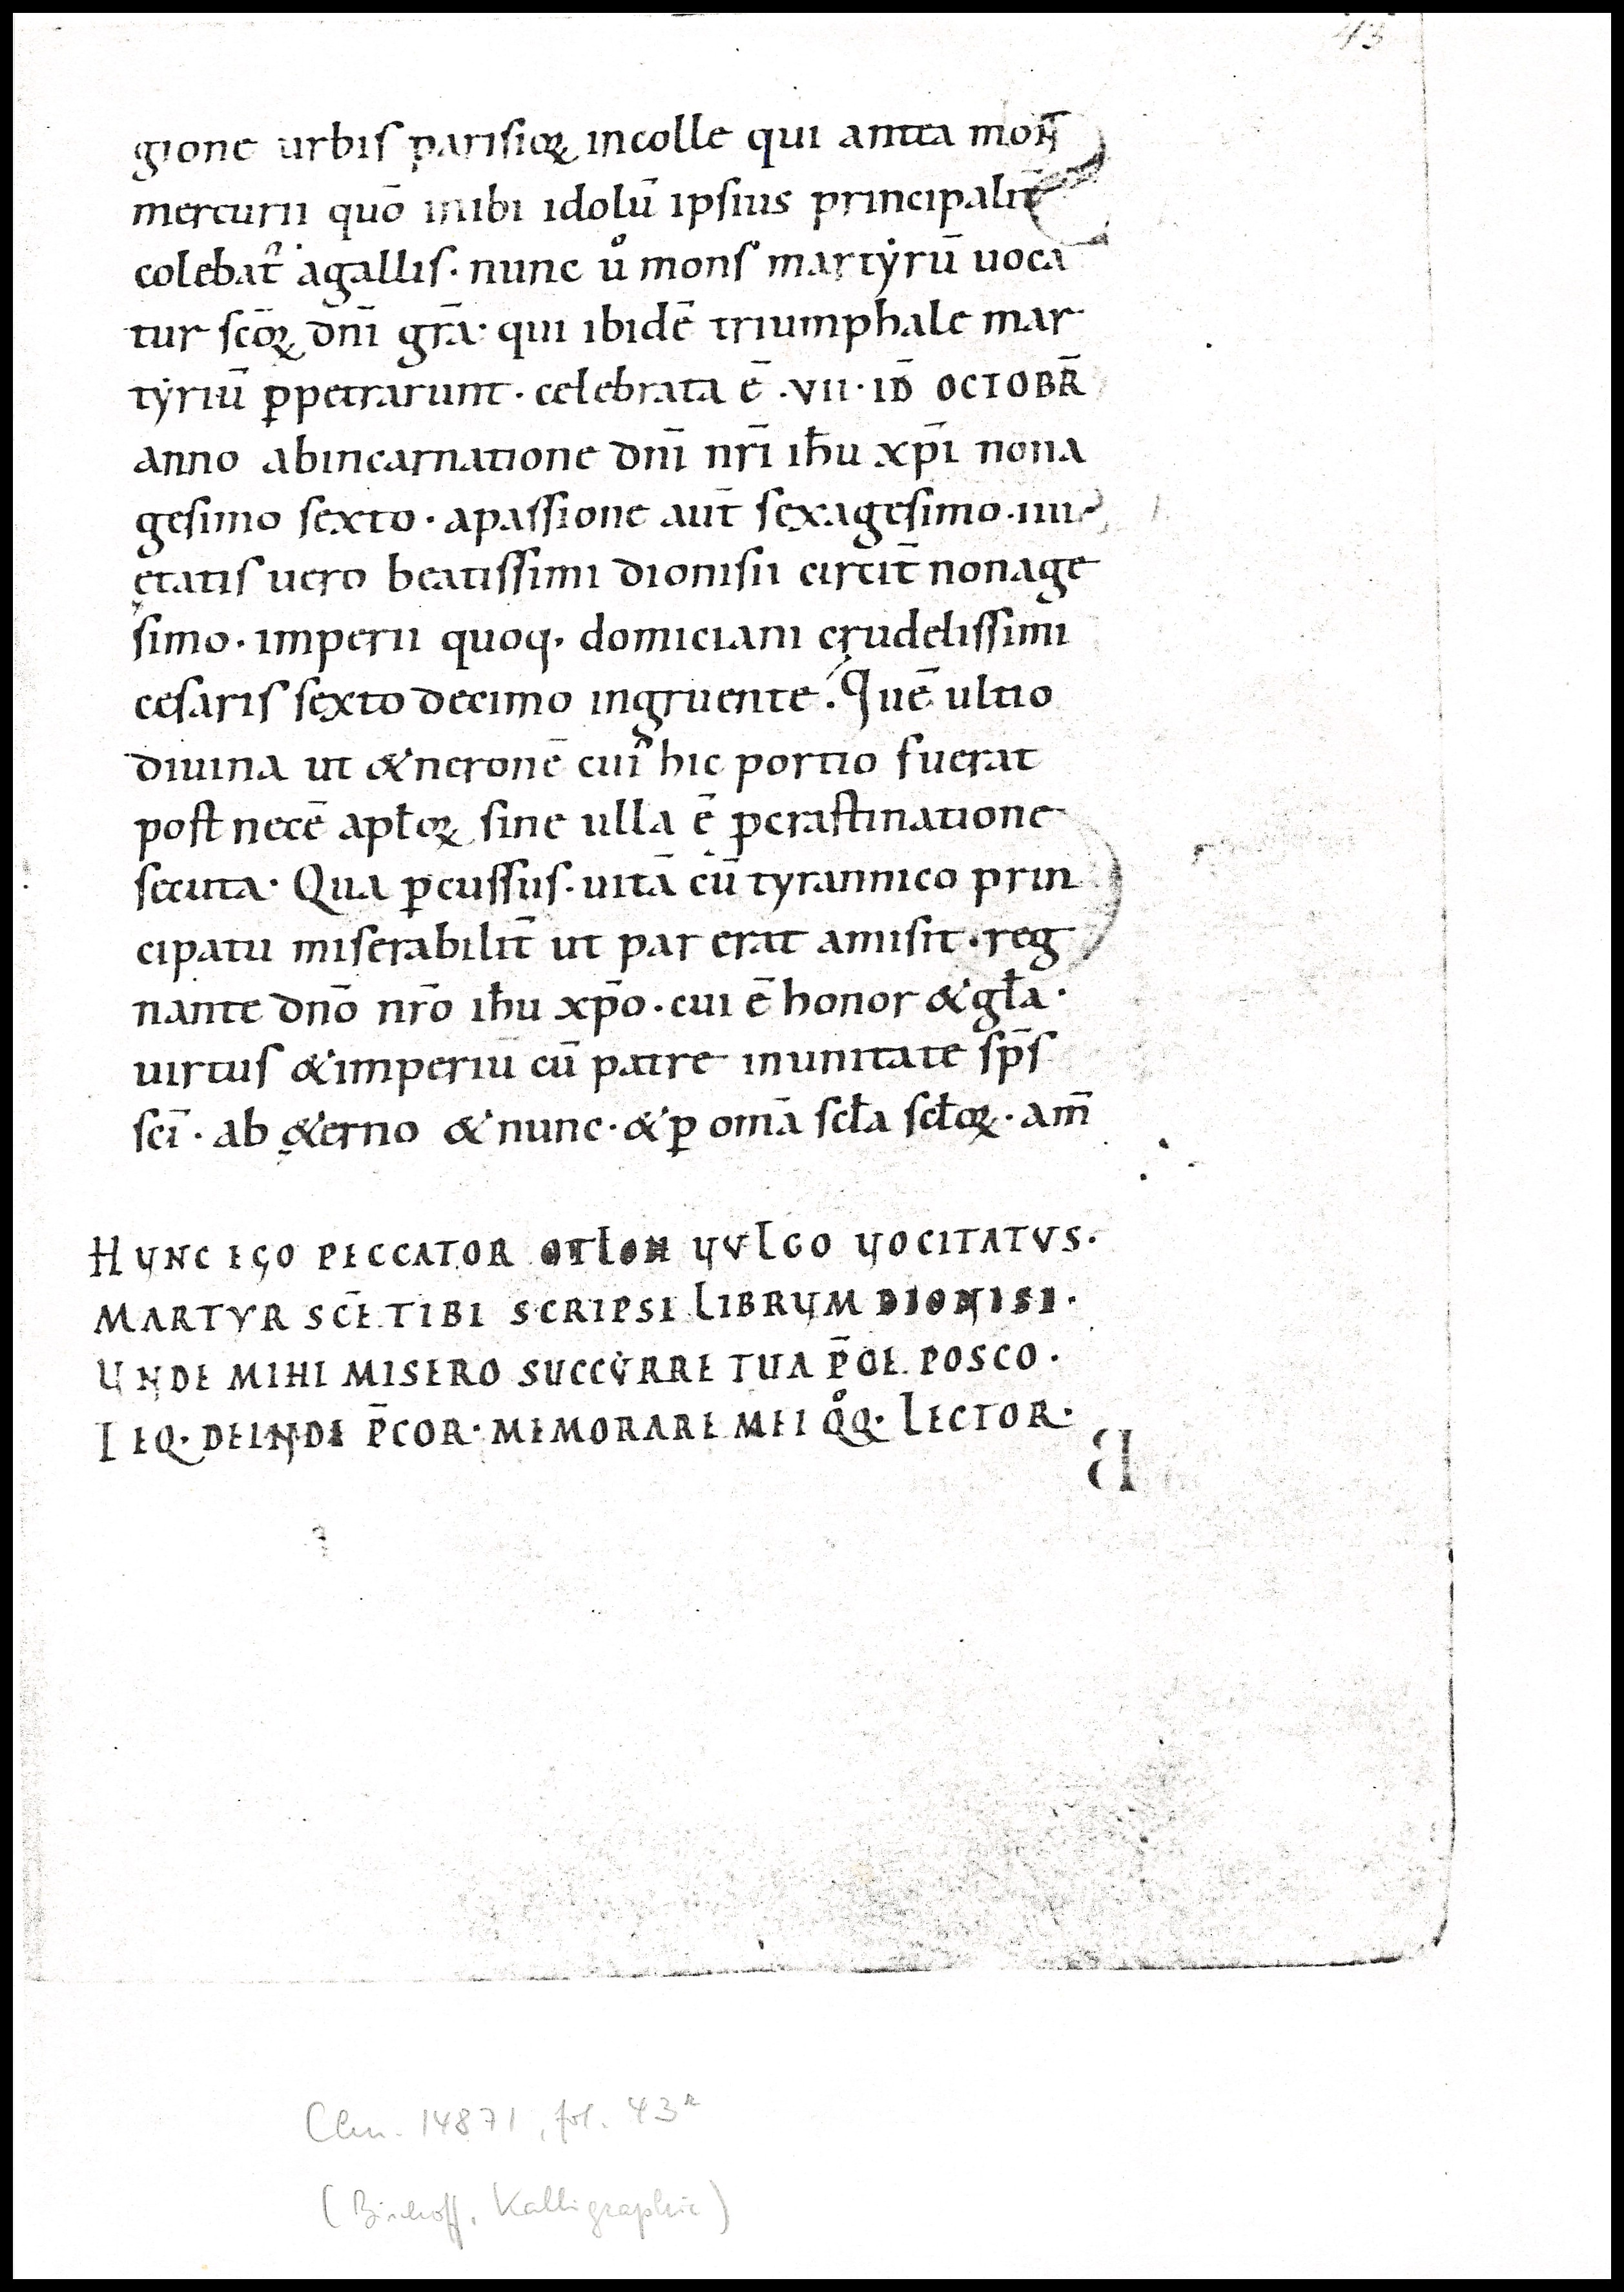 43
gione urbis parisioꝝ incolle qui antea mon̄
mercurii quō inibi idolū ipsius principalit̄
colebat᷑ agallis· nunc uͦ mons martẏrū uoca
tur sc̄oꝝ dn̄i gr̄a· qui ibidē triumphale mar
tẏriū ꝑpetrarunt· celebrata ē ·VII· ID̄ OCTOBR̄
anno abincarnatione dn̄i nr̄i ih̄u xp̄i nona
gesimo sexto· apassione aut̄ sexagesimo·IIII·
ętatis uero beatissimi dionisii circit̄ nonage
simo· imperii quoq· domiciani crudelissimi
cesaris sexto decimo ingruente. Quē ultio
diuina ut &neronē cui᷒ hic portio fuerat
post necē apl̄oꝝ sine ulla ē ꝑcrastinatione
secuta· Qua ꝑcussus· uitā cū tyrannico prin
cipatu miserabilit̄ ut par erat amisit· reg
nante dn̄o nr̄o ih̄u xp̄o· cui ē honor & gl̄a·
uirtus &imperiū cū patre inunitate sp̄s
sc̄i· ab ę&erno & nunc· &ꝑ omā scl̄a scl̄oꝝ· am̄
HUNC EGO PECCATOR OTLOH VULGO VOCITATVS·
MARTYR SC̄E TIBI SCRIPSI LIBRUM DIONISI·
UNDE MIHI MISERO SUCCURRE TUA P̄CE POSCO·
TEQ· DEINDE P̄COR· MEMORARE MEI QͦQ· LECTOR·
a
Clm. 14871, fol. 43r
(Bischoff, Kalligraphie)